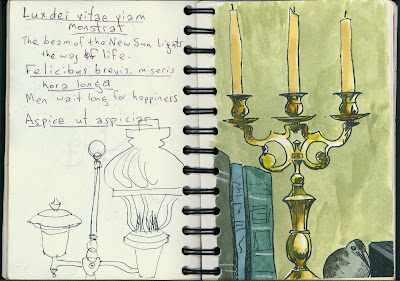 Lux dei vitae viam
monstrat
The beam of the New Sun Lights
the way of life.
Felicibus brevis, miseris
hora longa
Men wait long for happiness
Aspice ut aspiciar